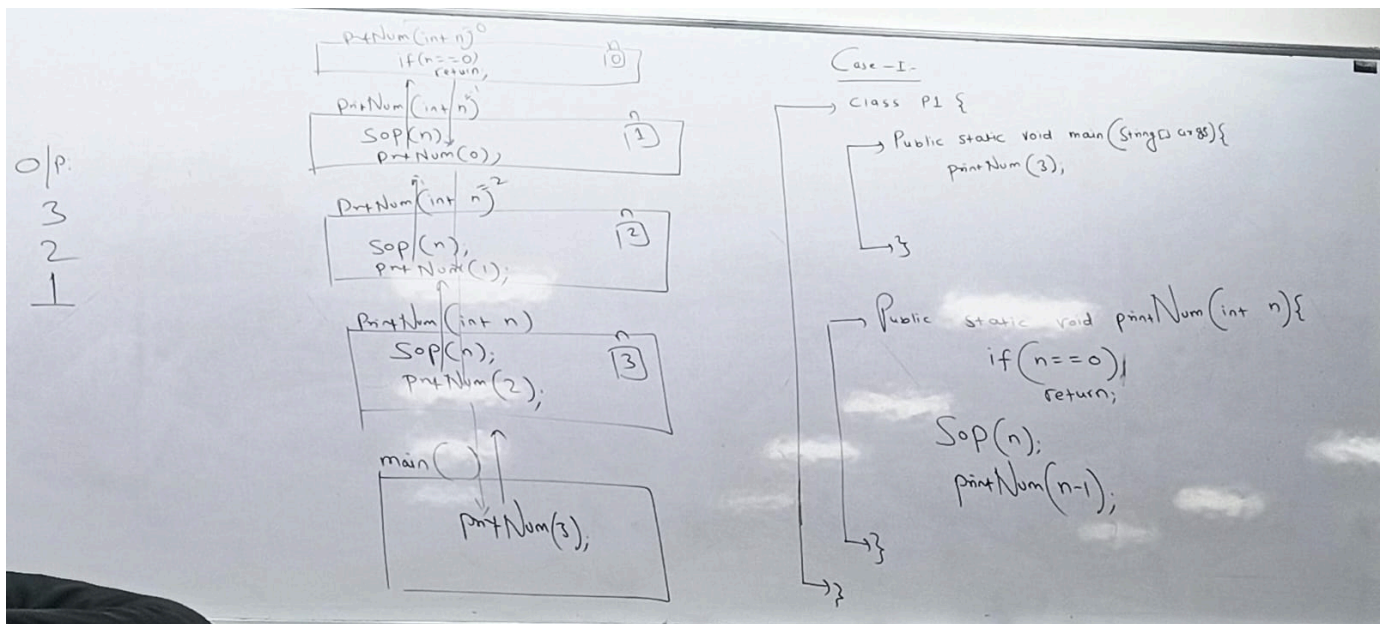 O/P.
3
2
1
prtNum(int n)=0
n
if(n==0)
0
return;
printNum(int n)=1
n
Sop(n);
1
prtNum(0);
PrtNum(int n)=2
n
Sop(n);
2
prtNum(1);
PrintNum(int n)
n
Sop(n);
3
prtNum(2);
main()
prntNum(3);
Case-I-
Class P1 {
Public static void main(String[] args){
printNum(3);
}
Public static void printNum(int n){
if(n==0)
return;
Sop(n);
printNum(n-1);
}
}